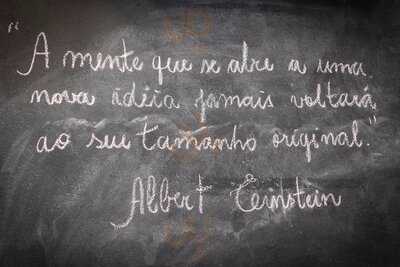 "A mente que se abre a uma
nova idéia jamais voltará
ao seu tamanho original."
Albert Einstein